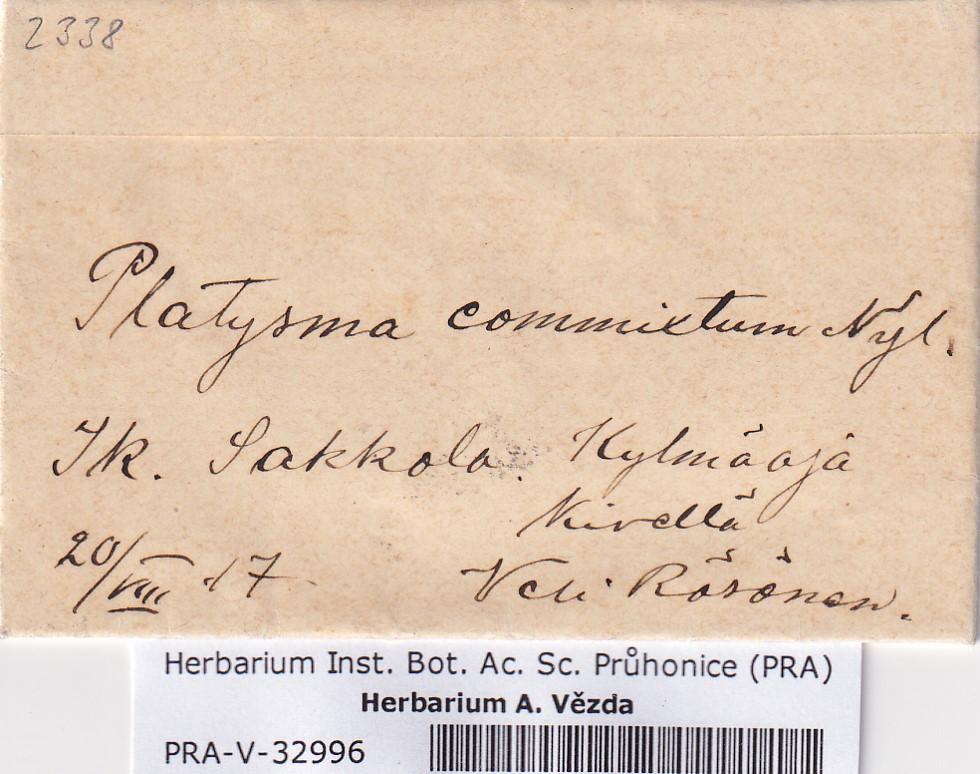 2338
Platysma commixtum Nyl.
Ik. Sakkola. Kylmäoja
Kivellä
20/VIII 17
Veli Räsänen.
Herbarium Inst. Bot. Ac. Sc. Průhonice (PRA)
Herbarium A. Vězda
PRA-V-32996